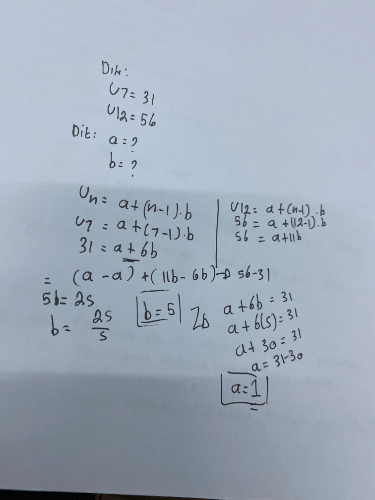 Dik:
U7 = 31
U12 = 56
Dit: a = ?
b = ?
Un = a + (n-1).b
U7 = a + (7-1).b
31 = a + 6b
U12 = a + (n-1).b
56 = a + (12-1).b
56 = a + 11b
= (a - a) + (11b - 6b) → 56-31
5b = 25
b = 25/5
b = 5
a + 6b = 31
a + 6(5) = 31
a + 30 = 31
a = 31-30
a = 1